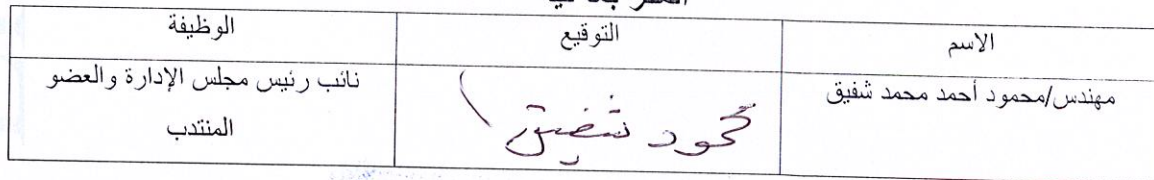 الاسم التوقيع الوظيفة
مهندس/محمود أحمد محمد شفيق محمود شفيق نائب رئيس مجلس الإدارة والعضو
المنتدب